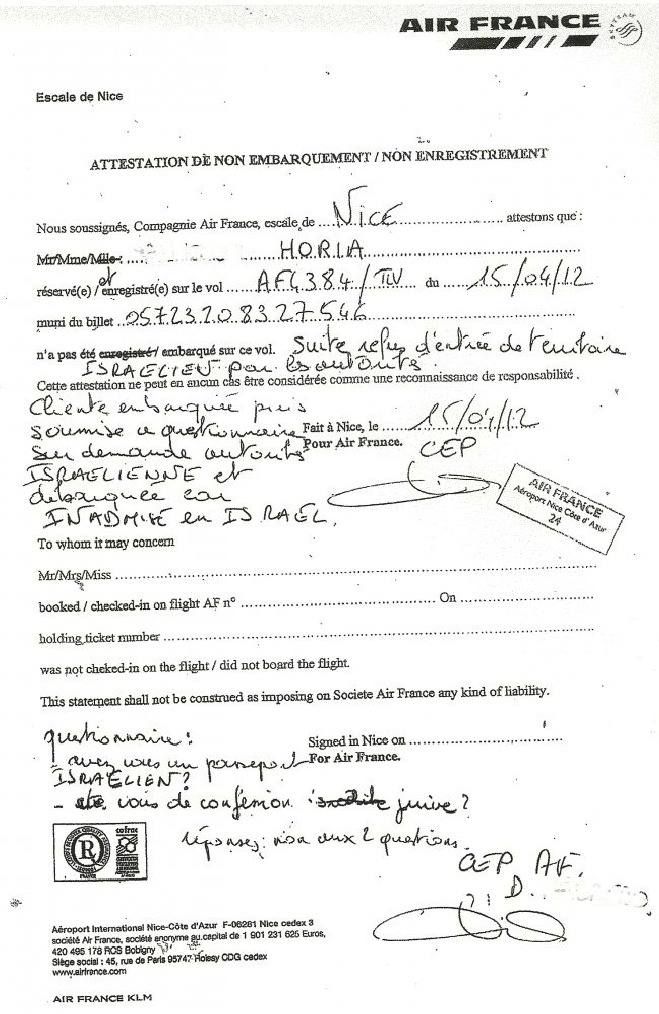 AIR FRANCE
SKYTEAM
Escale de Nice
ATTESTATION DE NON EMBARQUEMENT / NON ENREGISTREMENT
Nous soussignés, Compagnie Air France, escale de ....NICE................ attestons que :
Mr/Mme/Mlle : .... HORIA ................
et
réservé(e) / enregistré(e) sur le vol ....AF4384/TLV.... du ....15/04/12....
muni du billet ..0572320832 7546................
n'a pas été enregistré / embarqué sur ce vol. Suite refus d'entrée de territoire
ISRAELIEN par les autorités.
Cette attestation ne peut en aucun cas être considérée comme une reconnaissance de responsabilité .
Cliente embarquée puis
soumise a questionnaire Fait à Nice, le ....15/04/12
sur demande autorités Pour Air France. CEP
ISRAELIENNE et
débarquée car
INADMISE en ISRAEL.
AIR FRANCE
Aéroport Nice Côte d'Azur
24
To whom it may concern
Mr/Mrs/Miss ................
booked / checked-in on flight AF n° ................ On ................
holding ticket number ................
was not cheked-in on the flight / did not board the flight.
This statement shall not be construed as imposing on Societe Air France any kind of liability.
questionnaire : Signed in Nice on ................
- avez vous un passeport For Air France.
ISRAELIEN ?
- etes vous de confession juive ?
réponses : non aux 2 questions.
CEP AF.
D.
R
cofrac
Aéroport International Nice-Côte d'Azur F-06281 Nice cedex 3
société Air France, société anonyme au capital de 1 901 231 625 Euros,
420 495 178 RCS Bobigny
Siège social : 45, rue de Paris 95747 Roissy CDG cedex
www.airfrance.com
AIR FRANCE KLM